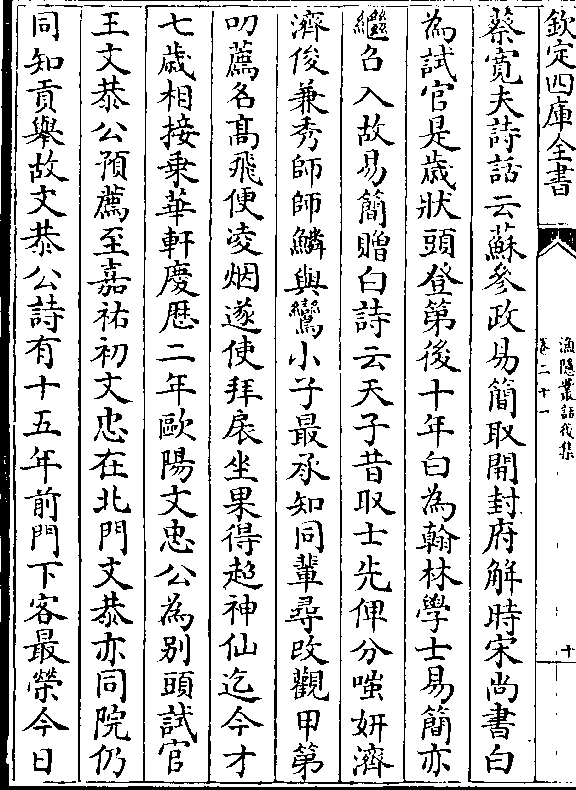 欽定四庫全書
漁隱叢話後集
卷二十一
十
蔡寛夫詩話云蘇參政易簡取開封府解時宋尚書白
為試官是歲狀頭登第後十年白為翰林學士易簡亦
繼召入故易簡贈白詩云天子昔取士先俾分嗤妍濟
濟俊兼秀師師鱗與鸞小子最承知同輩尋改觀甲第
叨薦名髙飛便凌烟遂使拜扆坐果得超神仙迄今才
七歲相接乗華軒慶厯二年歐陽文忠公為别頭試官
王文恭公預薦至嘉祐初文忠在北門文恭亦同院仍
同知貢舉故文恭公詩有十五年前門下客最榮今日